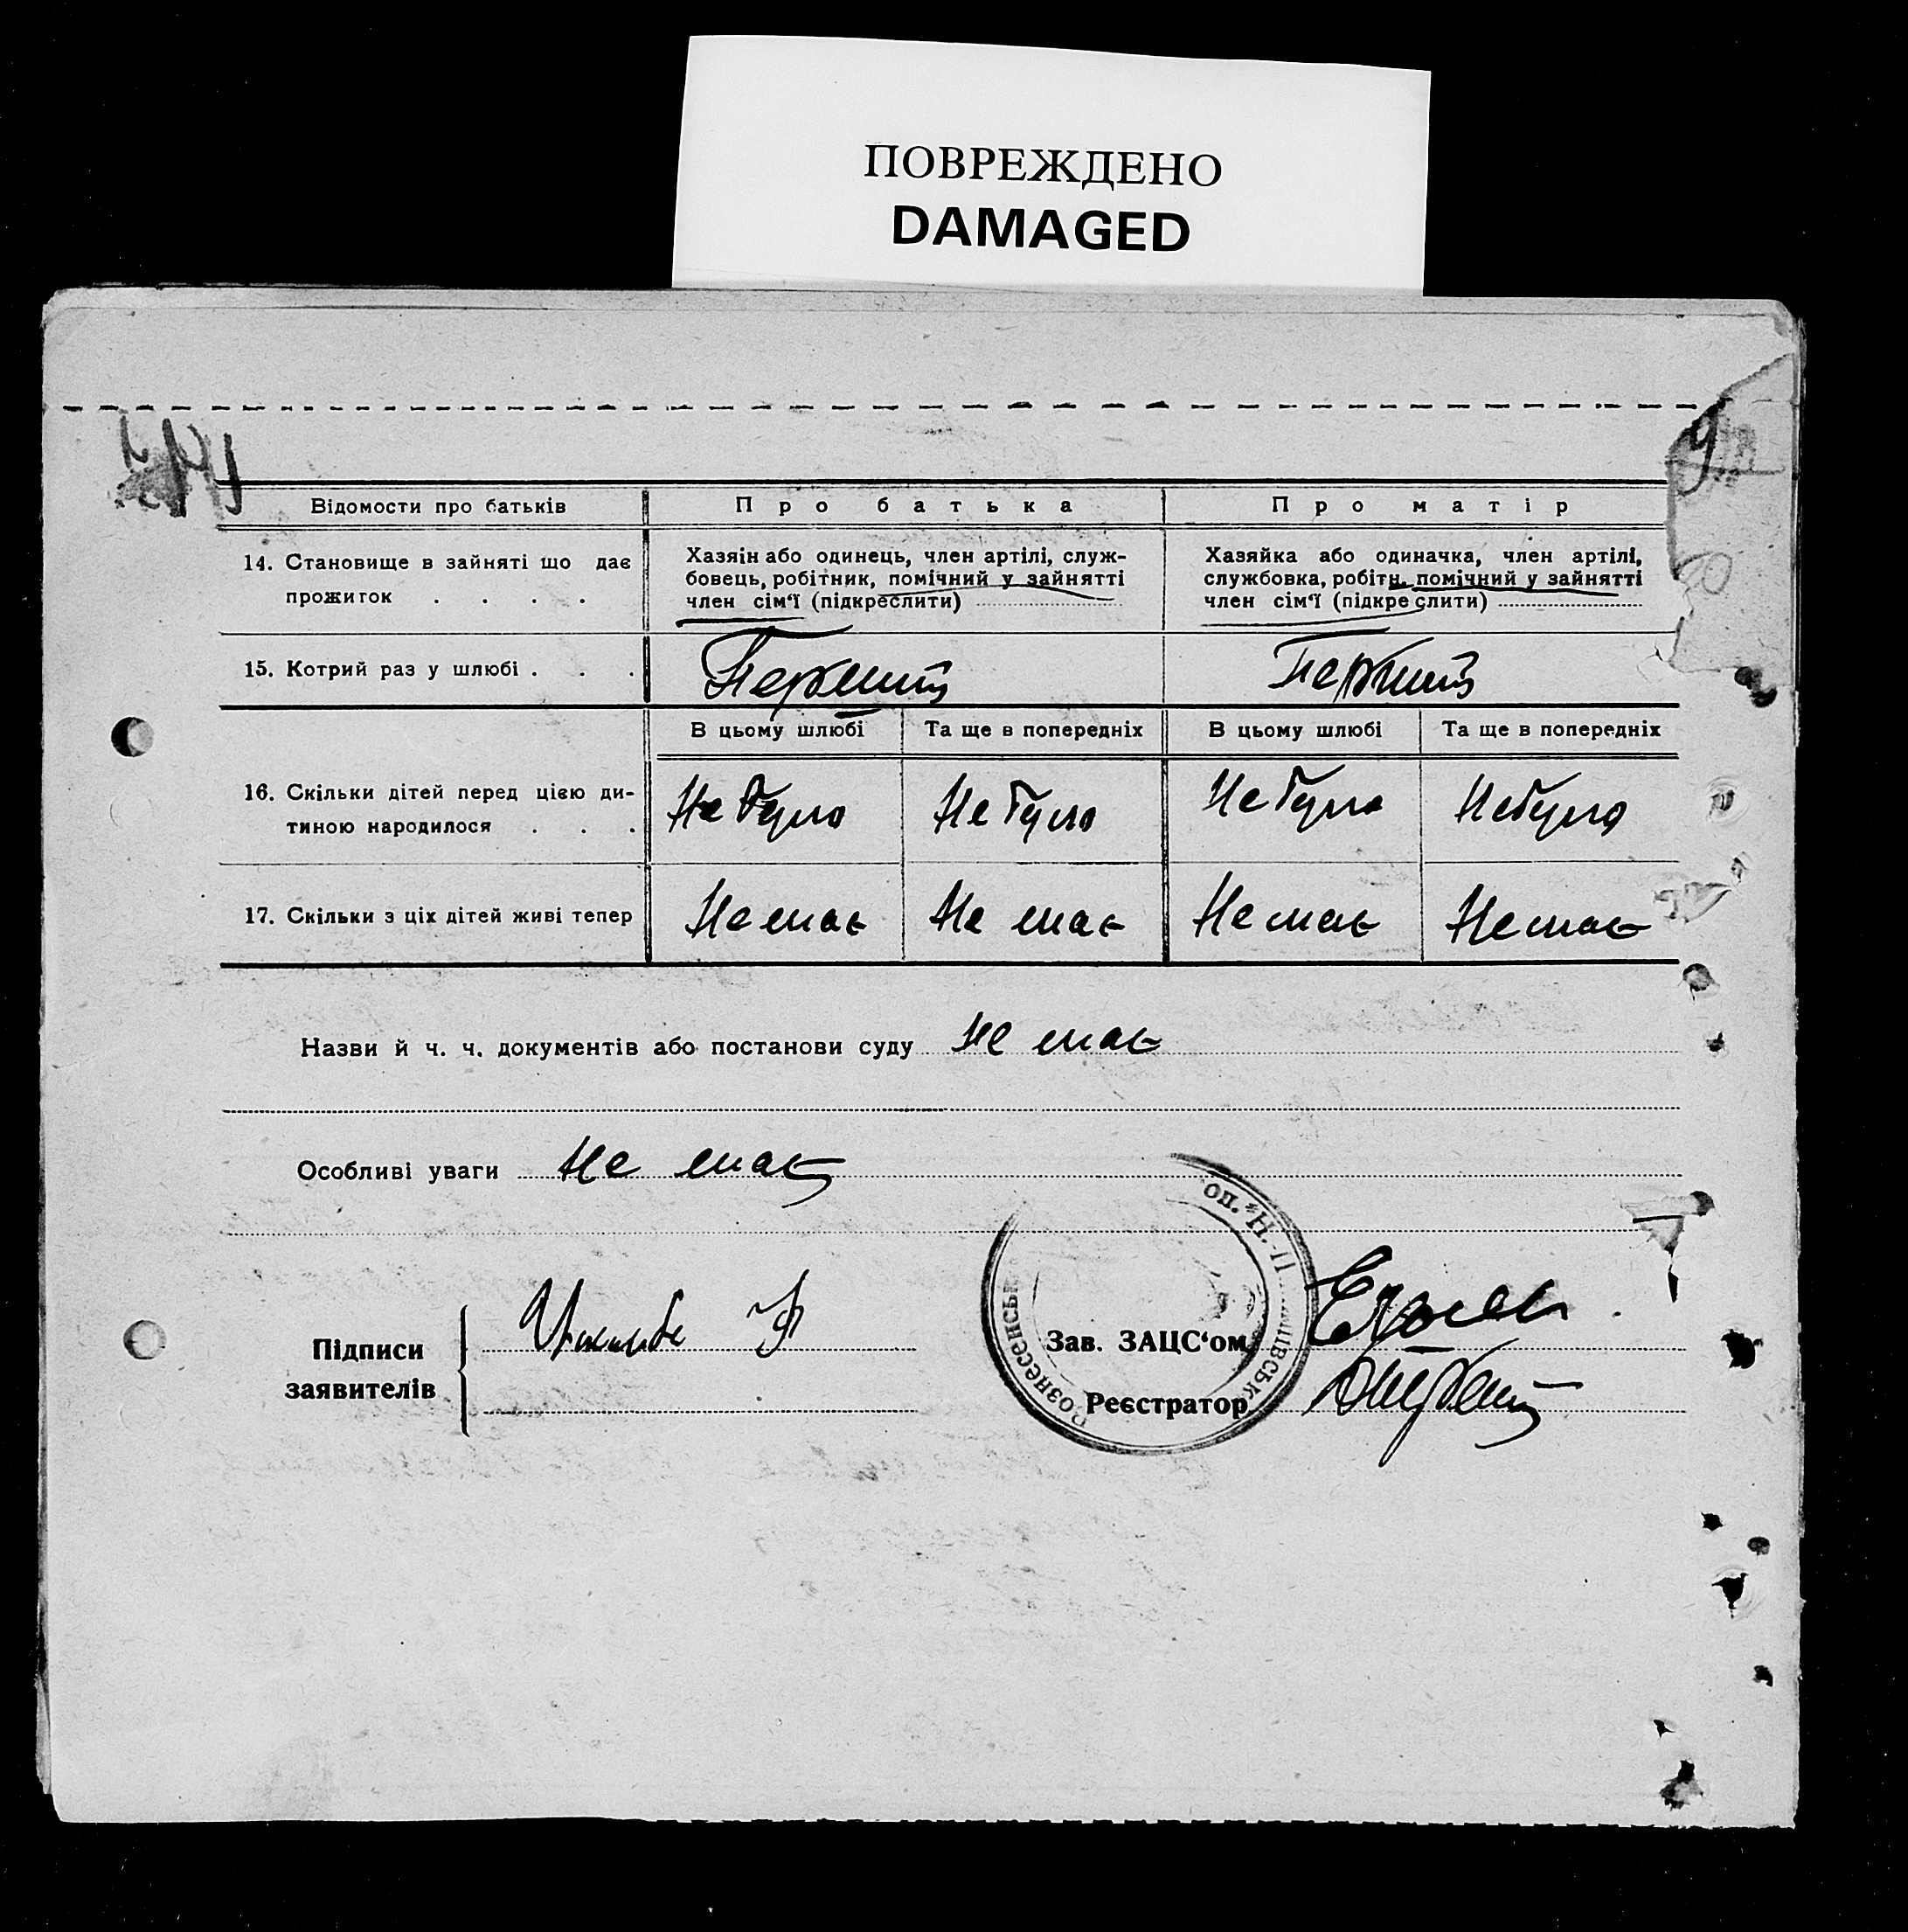 ПОВРЕЖДЕНО
DAMAGED
Відомости про батьків
Про батька
Про матір
14. Становище в зайняті що дає
прожиток . . . .
Хазяїн або одинець, член артілі, служ-
бовець, робітник, помічний у зайнятті
член сім‘ї (підкреслити)
Хазяйка або одиначка, член артілі,
службовка, робітн. помічний у зайнятті
член сім‘ї (підкреслити)
15. Котрий раз у шлюбі . . .
Перший
Перший
В цьому шлюбі
Та ще в попередніх
В цьому шлюбі
Та ще в попередніх
16. Скільки дітей перед цією ди-
тиною народилося . . .
Не було
Не було
Не було
Не було
17. Скільки з ціх дітей живі тепер
Не має
Не має
Не має
Не має
Назви й ч. ч. документів або постанови суду Не має
Особливі уваги Не має
Підписи
заявителів
Зав. ЗАЦС‘ом
Реєстратор